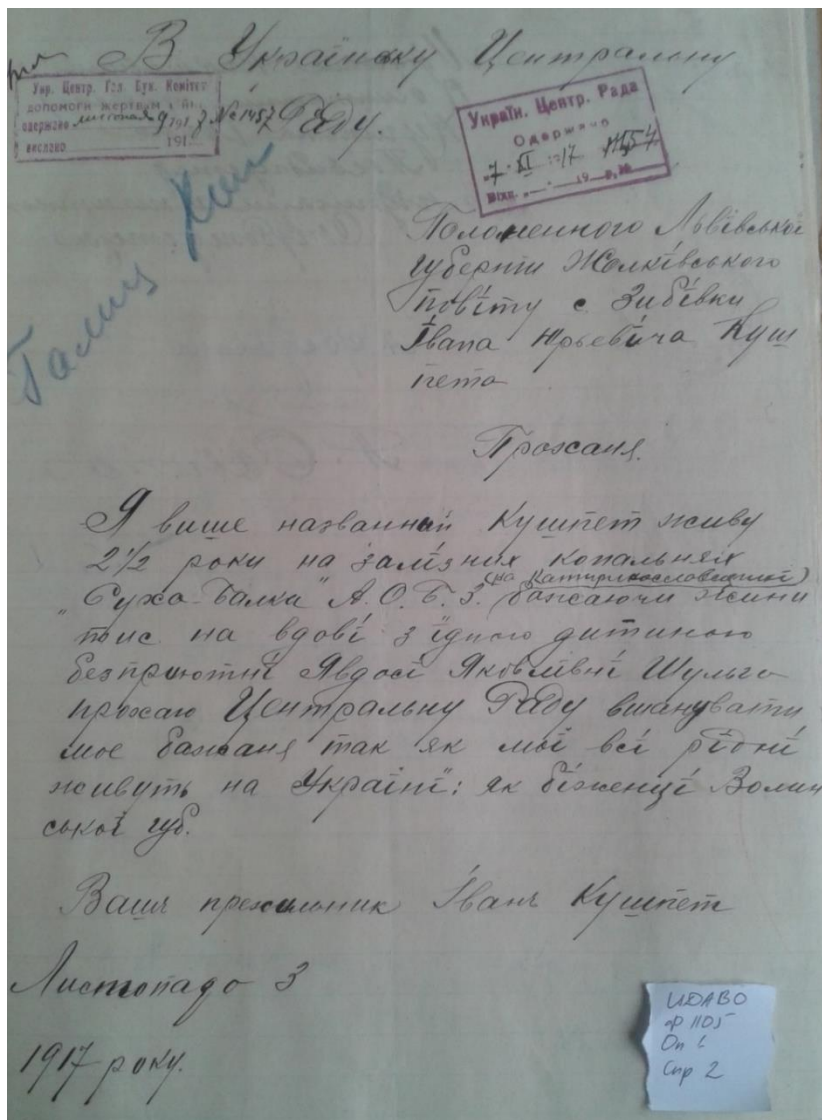 В Українську Центральну
Раду.
Укр. Центр. Гол. Бук. Комітет
допомоги жертвам
одержано листопада 9 1917 № 1457
вислано 191
Україн. Центр. Рада
Одержано
7 XI 1917
Відп. 19 р. №
Галиц
Полоненного Львівської
губернії Жолківського
повіту с. Зибівки
Івана Юрьевича Куш
пета
Прозханя.
Я више названний Кушпет живу
2½ роки на залізних копальнях
(на Катиринославщині)
"Суха-Балка" А.О.Б.З. бажаючи жини
тись на вдові з їдною дитиною
безприютні Явдосі Яковлівні Шульго
прохаю Центральну Раду вшанувати
моє бажаня так як мої всі рідні
живуть на Україні: як біженці Волин
ської губ.
Вашъ прохильник Іванъ Кушпет
Листопадо 3
1917 року.
ЦДАВО
ф 1105
Оп 1
Спр 2